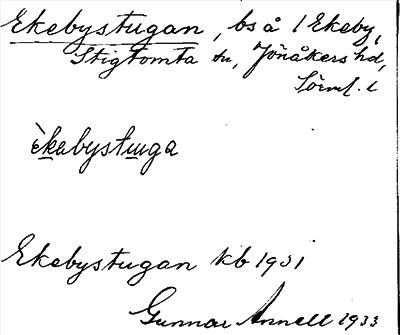 Ekebystugan, bs å 1 Ekeby,
Stigtomta sn, Jönåkers hd,
Sörml. l
èkebystuga
Ekebystugan kb 1931
Gunnar Annell 1933